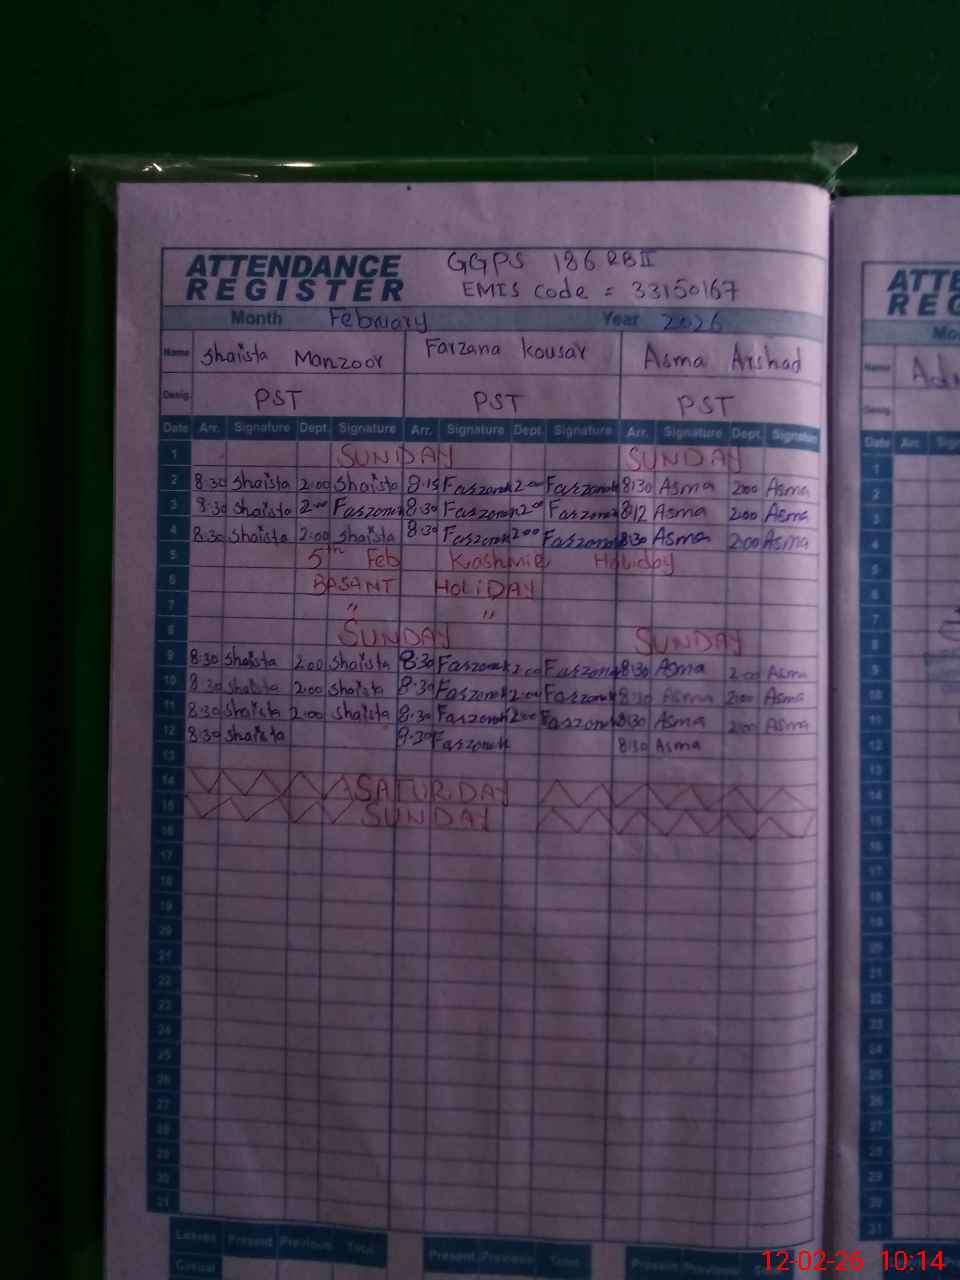 GGPS 186 RB II
ATTENDANCE REGISTER
EMIS Code = 33150167
Month February Year 2026
Name Shaista Manzoor Farzana Kousar Asma Arshad
Desig. PST PST PST
Date Arr. Signature Dept. Signature Arr. Signature Dept. Signature Arr. Signature Dept. Signature
1 SUNDAY SUNDAY
2 8:30 Shaista 2:00 Shaista 8:15 Farzana 2:00 Farzana 8:30 Asma 2:00 Asma
3 8:30 Shaista 2:00 Farzana 8:30 Farzana 2:00 Farzana 8:12 Asma 2:00 Asma
4 8:30 Shaista 2:00 Shaista 8:30 Farzana 2:00 Farzana 8:30 Asma 2:00 Asma
5 5th Feb Kashmir Holiday
6 BASANT HOLiDAY
7 " "
8 SUNDAY SUNDAY
9 8:30 Shaista 2:00 Shaista 8:30 Farzana 2:00 Farzana 8:30 Asma 2:00 Asma
10 8:30 Shaista 2:00 Shaista 8:30 Farzana 2:00 Farzana 8:30 Asma 2:00 Asma
11 8:30 Shaista 2:00 Shaista 8:30 Farzana 2:00 Farzana 8:30 Asma 2:00 Asma
12 8:30 Shaista Farzana 8:30 Asma
13
14 SATURDAY
15 SUNDAY
16
17
18
19
20
21
22
23
24
25
26
27
28
29
30
31
Leaves Present Previous Total Present Previous Total Present Previous
Casual
12-02-26 10:14